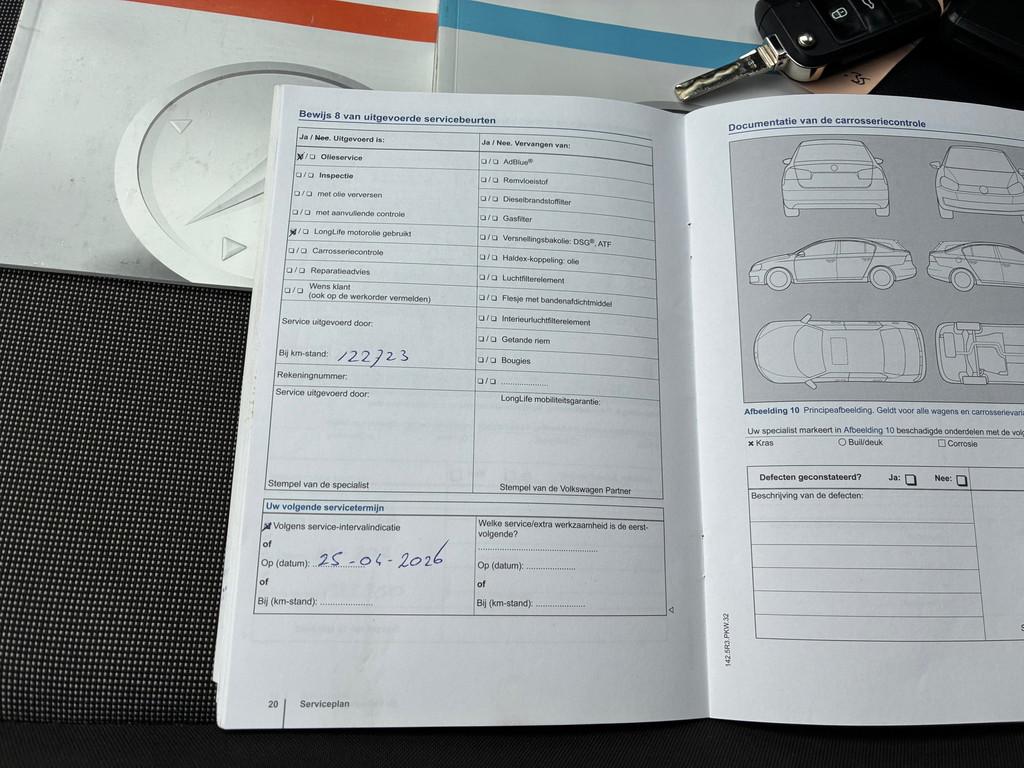 :35
Bewijs 8 van uitgevoerde servicebeurten
Ja / Nee. Uitgevoerd is:
Olieservice
Inspectie
met olie verversen
met aanvullende controle
LongLife motorolie gebruikt
Carrosseriecontrole
Reparatieadvies
Wens klant
(ook op de werkorder vermelden)
Service uitgevoerd door:
Bij km-stand: 122723
Rekeningnummer:
Service uitgevoerd door:
Stempel van de specialist
Ja / Nee. Vervangen van:
AdBlue®
Remvloeistof
Dieselbrandstoffilter
Gasfilter
Versnellingsbakolie: DSG®, ATF
Haldex-koppeling: olie
Luchtfilterelement
Flesje met bandenafdichtmiddel
Interieurluchtfilterelement
Getande riem
Bougies
....................
LongLife mobiliteitsgarantie:
Stempel van de Volkswagen Partner
Uw volgende servicetermijn
Volgens service-intervalindicatie
of
Op (datum): 25-04-2026
of
Bij (km-stand): ....................
Welke service/extra werkzaamheid is de eerst-
volgende?
Op (datum): ....................
of
Bij (km-stand): ....................
20 Serviceplan
Documentatie van de carrosseriecontrole
Afbeelding 10 Principeafbeelding. Geldt voor alle wagens en
Uw specialist markeert in Afbeelding 10 beschadigde onderdelen met de
Kras
Buil/deuk
Corrosie
Defecten geconstateerd? Ja: Nee:
Beschrijving van de defecten:
142.5R3.PKW.32